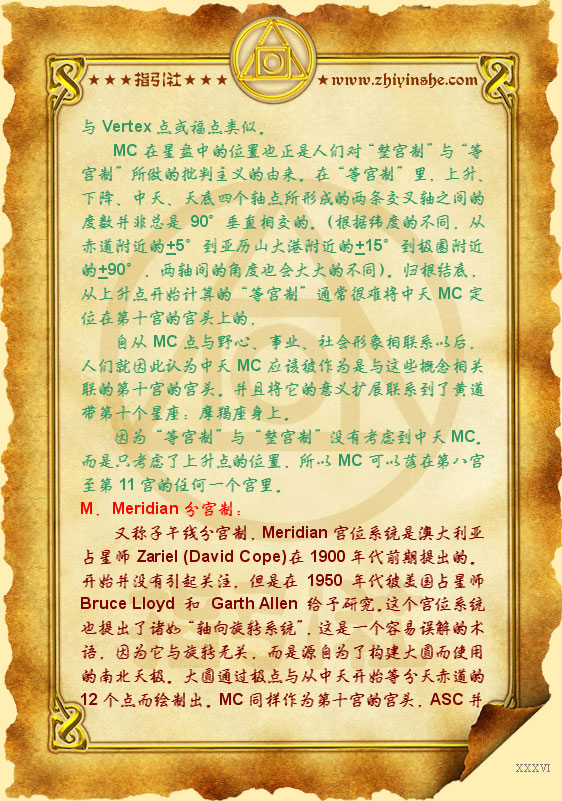 ★★★指引社★★★ ★www.zhiyinshe.com
与 Vertex 点或福点类似。
MC 在星盘中的位置也正是人们对“整宫制”与“等
宫制”所做的批判主义的由来。在“等宫制”里，上升、
下降、中天、天底四个轴点所形成的两条交叉轴之间的
度数并非总是 90°垂直相交的。(根据纬度的不同，从
赤道附近的±5°到亚历山大港附近的±15°到极圈附近
的±90°，两轴间的角度也会大大的不同)。归根结底，
从上升点开始计算的“等宫制”通常很难将中天 MC 定
位在第十宫的宫头上的，
自从 MC 点与野心、事业、社会形象相联系以后，
人们就因此认为中天 MC 应该被作为是与这些概念相关
联的第十宫的宫头。并且将它的意义扩展联系到了黄道
带第十个星座：摩羯座身上。
因为“等宫制”与“整宫制”没有考虑到中天 MC，
而是只考虑了上升点的位置，所以 MC 可以落在第八宫
至第 11 宫的任何一个宫里。
M．Meridian 分宫制：
又称子午线分宫制，Meridian 宫位系统是澳大利亚
占星师 Zariel (David Cope)在 1900 年代前期提出的。
开始并没有引起关注，但是在 1950 年代被美国占星师
Bruce Lloyd 和 Garth Allen 给予研究。这个宫位系统
也提出了诸如“轴向旋转系统”，这是一个容易误解的术
语，因为它与旋转无关，而是源自为了构建大圆而使用
的南北天极。大圆通过极点与从中天开始等分天赤道的
12 个点而绘制出。MC 同样作为第十宫的宫头，ASC 并
XXXVI